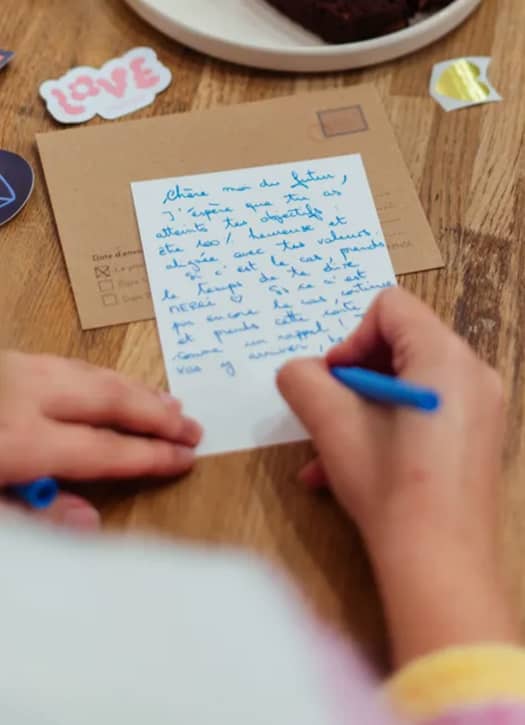 LOVE
Chère moi du futur,
J'espère que tu as
atteint tes objectifs :
être 100% heureuse et
alignée avec tes valeurs.
Si c'est le cas, prends
le temps de te dire
MERCI ♡ Si ce n'est
pas encore le cas, continue
et prends cette carte
comme un rappel !
vas y arriver,
Date d'envoi